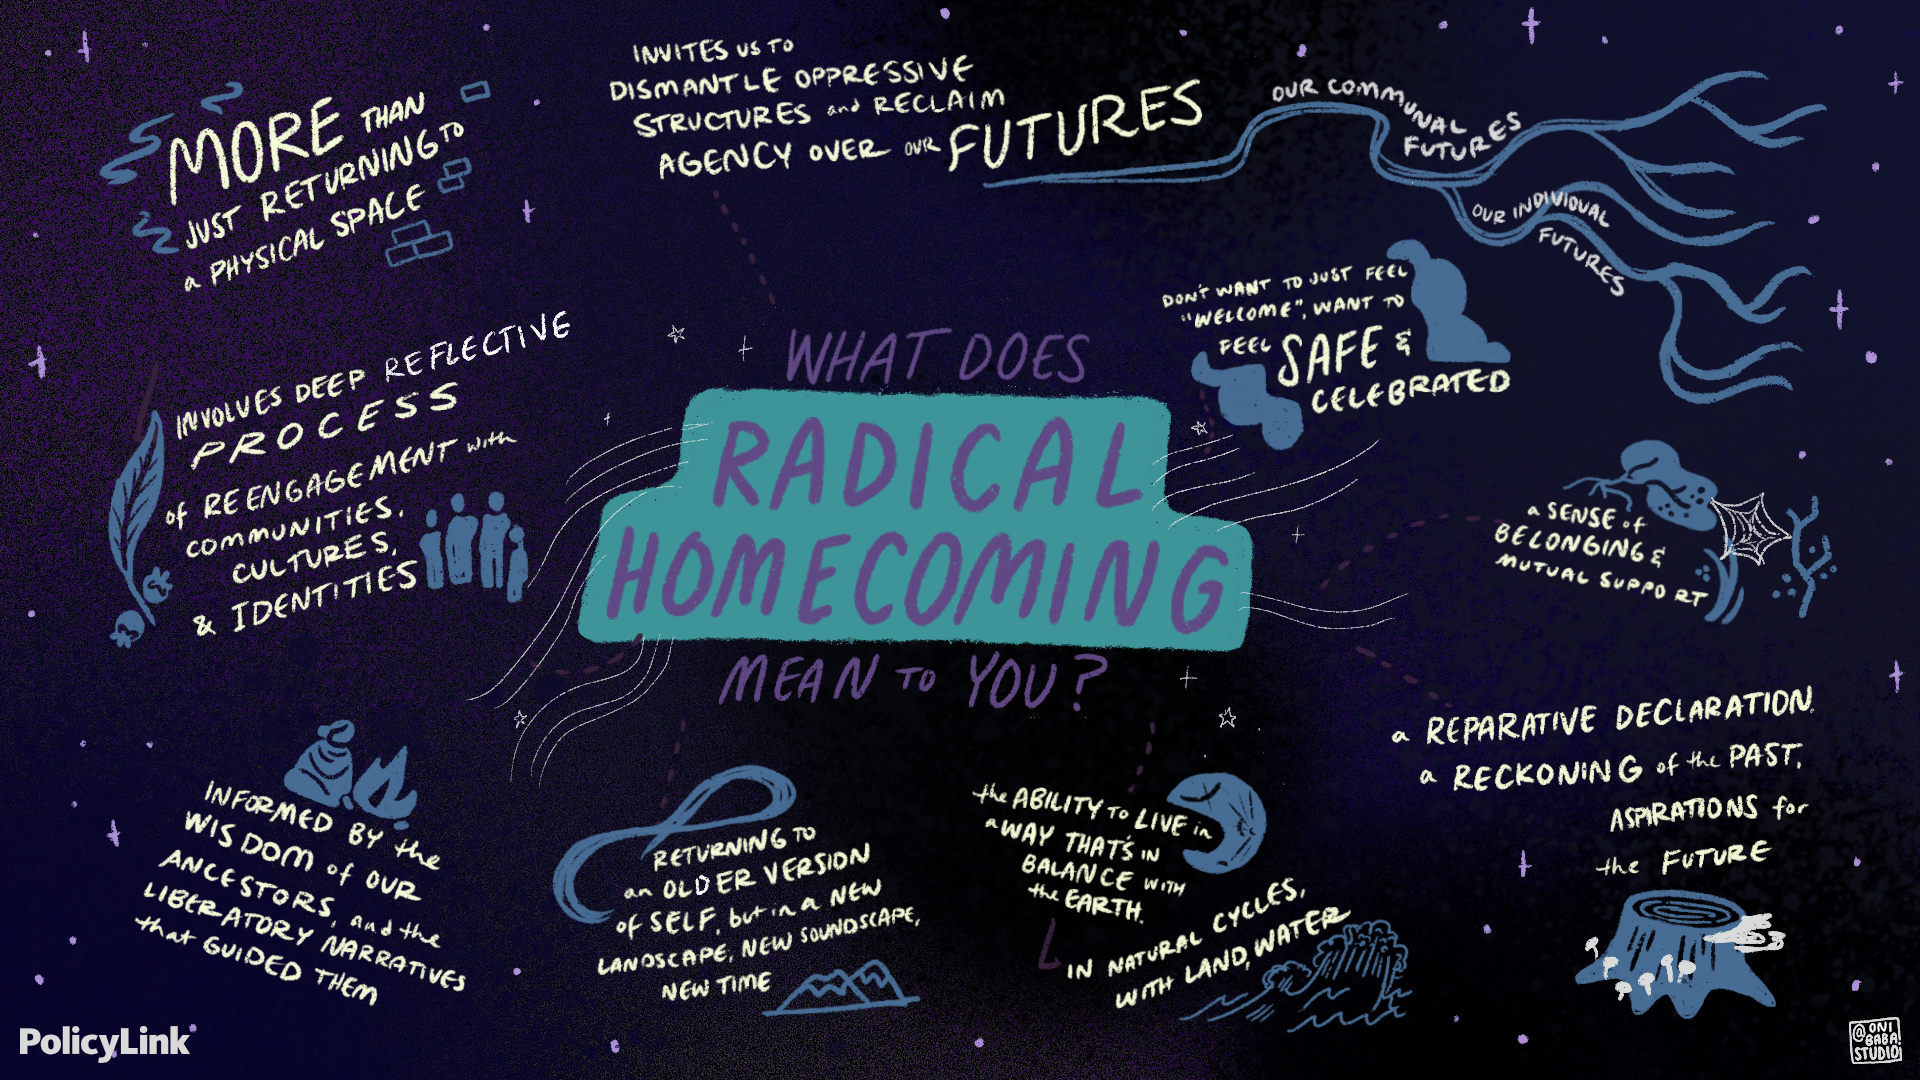 MORE THAN
JUST RETURNING TO
a PHYSICAL SPACE
INVITES US TO
DISMANTLE OPPRESSIVE
STRUCTURES and RECLAIM
AGENCY OVER OUR FUTURES
OUR COMMUNAL
FUTURES
OUR INDIVIDUAL
FUTURES
DON'T WANT TO JUST FEEL
"WELCOME", WANT TO
FEEL SAFE &
CELEBRATED
INVOLVES DEEP REFLECTIVE
PROCESS
of REENGAGEMENT with
COMMUNITIES,
CULTURES,
& IDENTITIES
WHAT DOES
RADICAL
HOMECOMING
MEAN TO YOU?
a SENSE of
BELONGING &
MUTUAL SUPPORT
a REPARATIVE DECLARATION.
a RECKONING of the PAST,
ASPIRATIONS for
the FUTURE
INFORMED BY the
WISDOM of OUR
ANCESTORS, and the
LIBERATORY NARRATIVES
that GUIDED THEM
RETURNING TO
an OLDER VERSION
of SELF, but in a NEW
LANDSCAPE, NEW SOUNDSCAPE,
NEW TIME
the ABILITY TO LIVE in
a WAY THAT'S IN
BALANCE WITH
the EARTH.
IN NATURAL CYCLES,
WITH LAND, WATER
PolicyLink
@ONI
BABA!
STUDIO